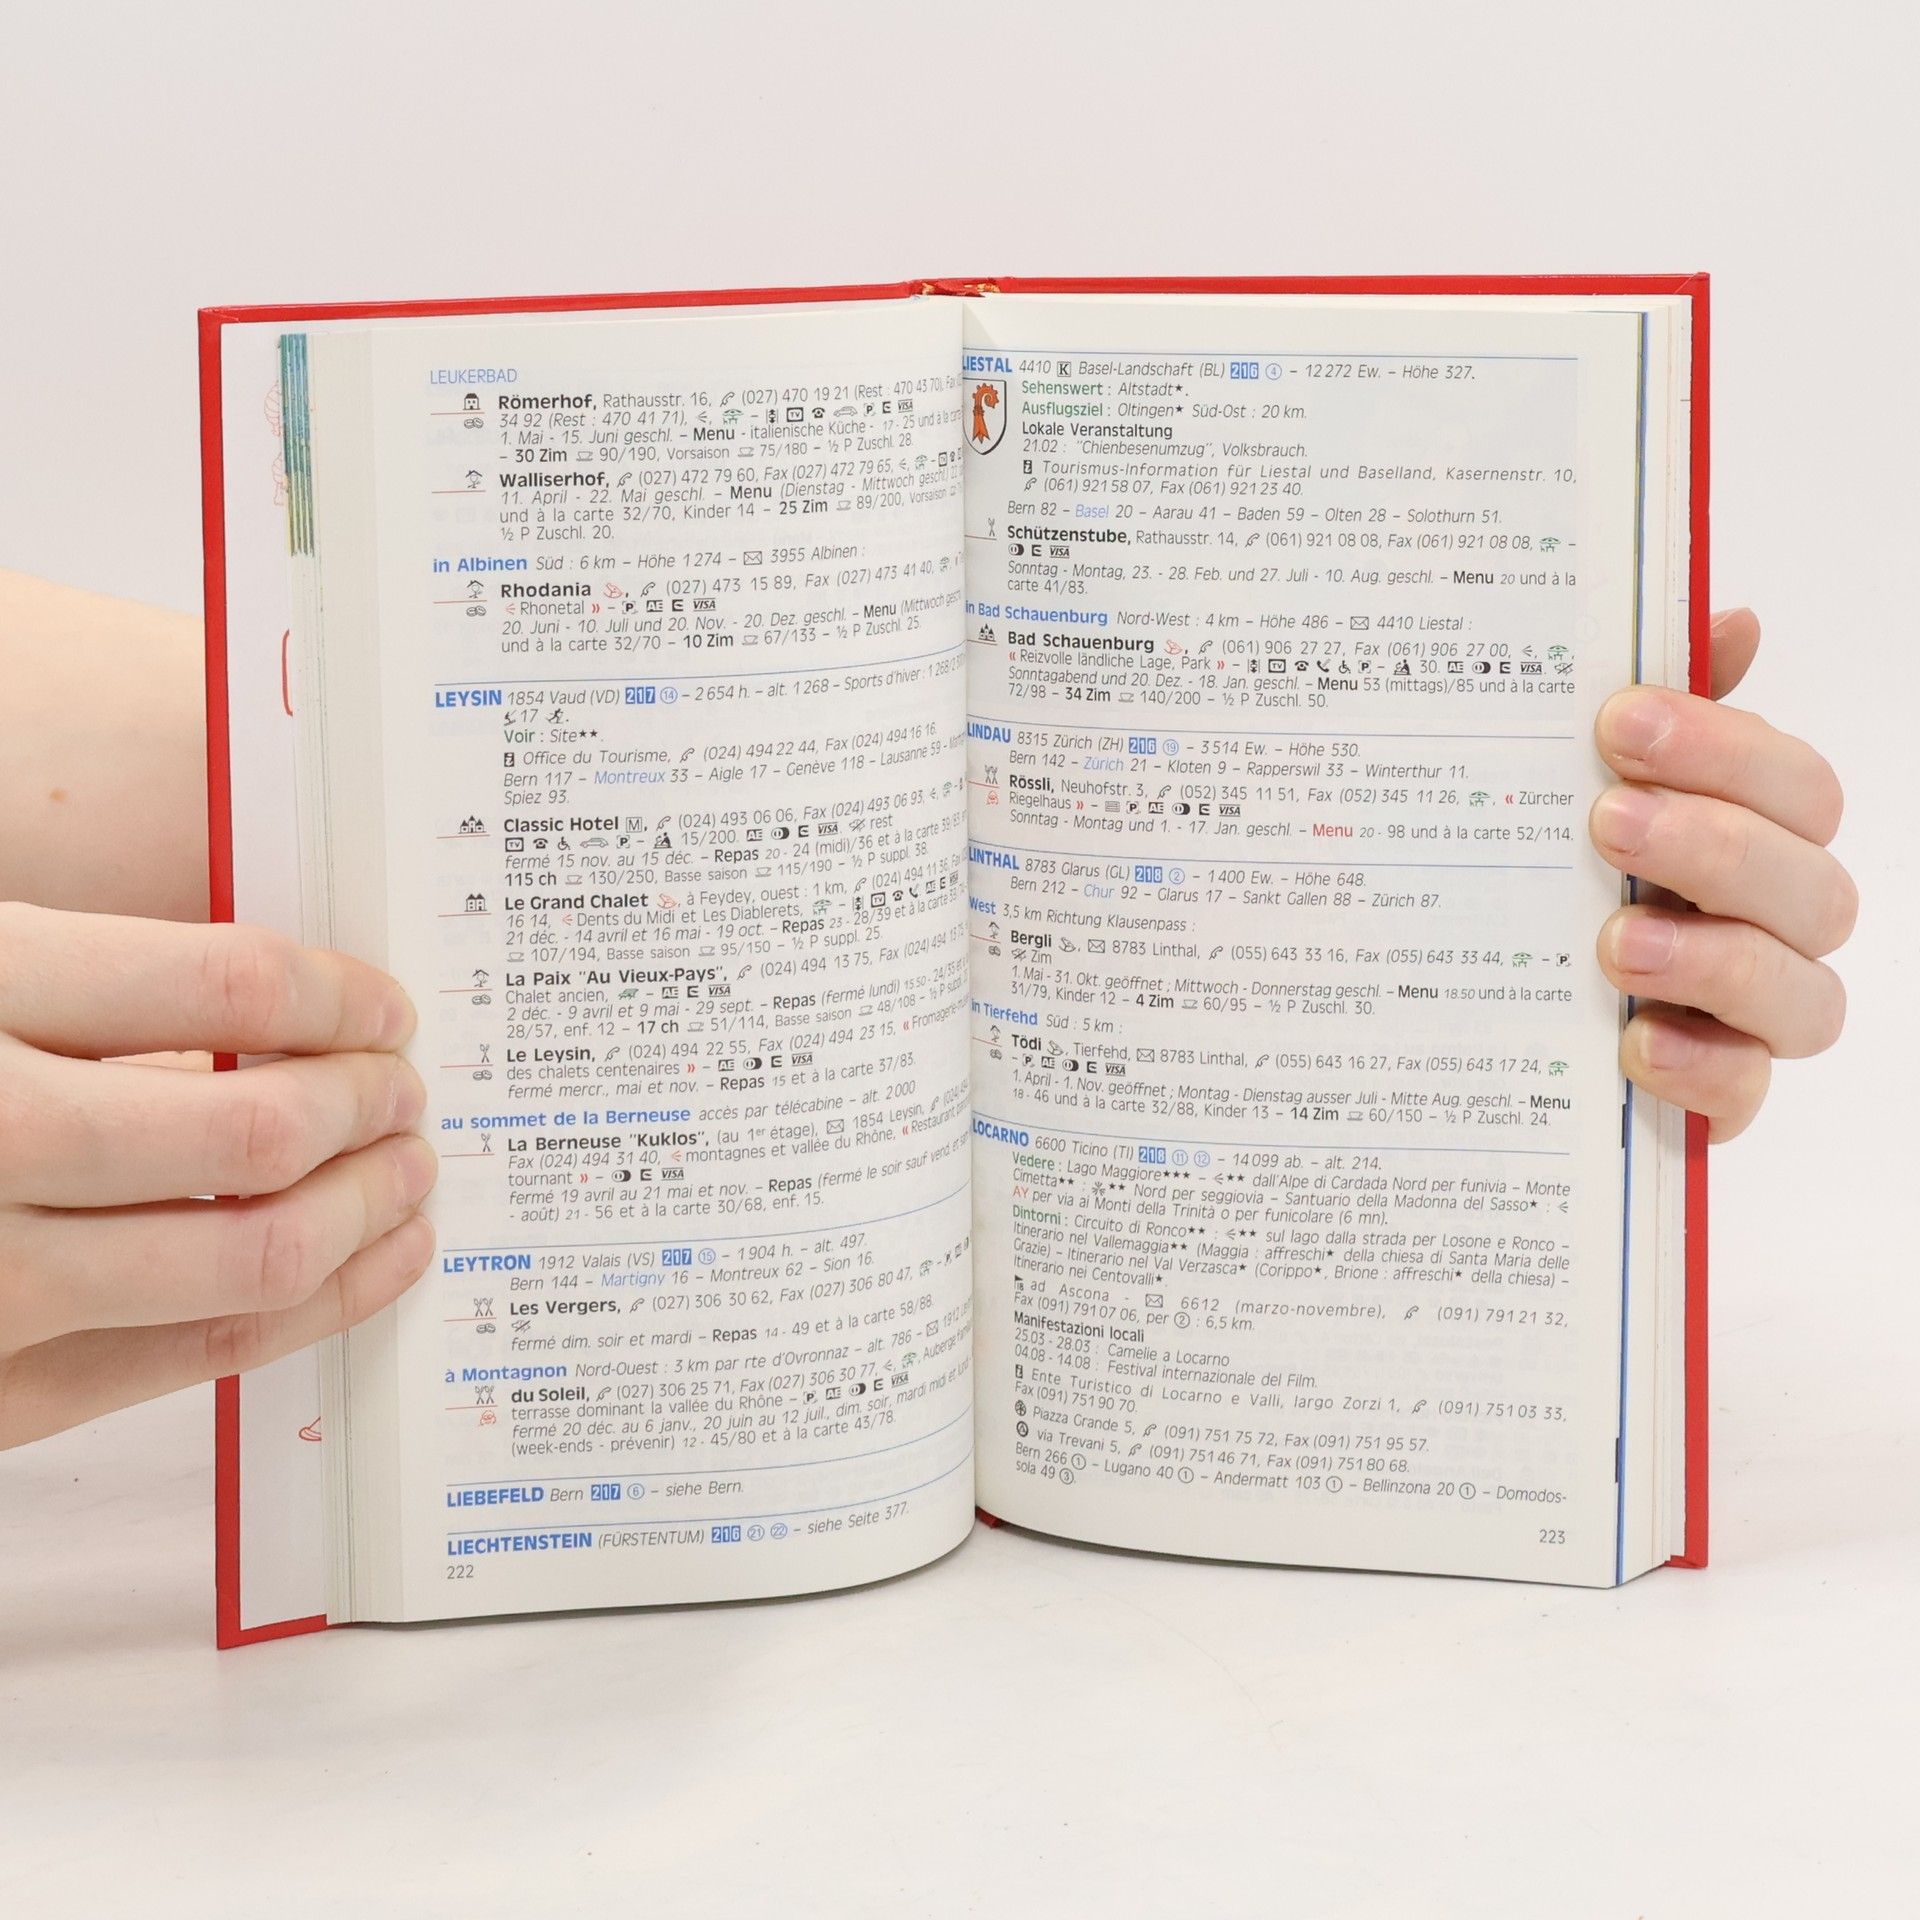 LEUKERBAD
Römerhof, Rathausstr. 16, (027) 470 19 21 (Rest : 470 43 70), Fax
34 92 (Rest : 470 41 71), – TV P E VISA
1. Mai - 15. Juni geschl. – Menu - italienische Küche - 17 - 25 und à la
– 30 Zim 90/190, Vorsaison 75/180 – ½ P Zuschl. 28.
Walliserhof, (027) 472 79 60, Fax (027) 472 79 65,
11. April - 22. Mai geschl. – Menu (Dienstag - Mittwoch geschl.)
und à la carte 32/70, Kinder 14 – 25 Zim 89/200, Vorsaison
½ P Zuschl. 20.
in Albinen Süd : 6 km – Höhe 1 274 – 3955 Albinen :
Rhodania , (027) 473 15 89, Fax (027) 473 41 40,
Rhonetal » – P AE E VISA
20. Juni - 10. Juli und 20. Nov. - 20. Dez. geschl. – Menu (Mittwoch
und à la carte 32/70 – 10 Zim 67/133 – ½ P Zuschl. 25.
LEYSIN 1854 Vaud (VD) 217 14 – 2 654 h. – alt. 1 268 – Sports d'hiver :
17 .
Voir : Site★★.
Office du Tourisme, (024) 494 22 44, Fax (024) 494 16 16.
Bern 117 – Montreux 33 – Aigle 17 – Genève 118 – Lausanne 59 –
Spiez 93.
Classic Hotel M, (024) 493 06 06, Fax (024) 493 06 93,
TV P – 15/200. AE E VISA. rest
fermé 15 nov. au 15 déc. – Repas 20 - 24 (midi)/36 et à la carte
115 ch 130/250, Basse saison 115/190 – ½ P suppl. 38.
Le Grand Chalet , à Feydey, ouest : 1 km, (024) 494 11 36,
16 14, Dents du Midi et Les Diablerets, – TV AE E VISA
21 déc. - 14 avril et 16 mai - 19 oct. – Repas 23 - 28/39 et à la carte
107/194, Basse saison 95/150 – ½ P suppl. 25.
La Paix "Au Vieux-Pays", (024) 494 13 75, Fax (024) 494 13 75
Chalet ancien, – AE E VISA
2 déc. - 9 avril et 9 mai - 29 sept. – Repas (fermé lundi) 15.50 - 24/35
28/57, enf. 12 – 17 ch 51/114, Basse saison 48/108 – ½ P suppl.
Le Leysin, (024) 494 22 55, Fax (024) 494 23 15, «
des chalets centenaires » – AE E VISA
fermé mercr., mai et nov. – Repas 15 et à la carte 37/83.
au sommet de la Berneuse accès par télécabine – alt. 2 000
La Berneuse "Kuklos", (au 1er étage), 1854 Leysin, (024)
Fax (024) 494 31 40, montagnes et vallée du Rhône, « Restaurant
tournant » – E VISA
fermé 19 avril au 21 mai et nov. – Repas (fermé le soir sauf vend. et
- août) 21 - 56 et à la carte 30/68, enf. 15.
LEYTRON 1912 Valais (VS) 217 15 – 1 904 h. – alt. 497.
Bern 144 – Martigny 16 – Montreux 62 – Sion 16.
Les Vergers, (027) 306 30 62, Fax (027) 306 80 47,
fermé dim. soir et mardi – Repas 14 - 49 et à la carte 58/88.
à Montagnon Nord-Ouest : 3 km par rte d'Ovronnaz – alt. 786 – 1912
du Soleil, (027) 306 25 71, Fax (027) 306 30 77, Auberge
terrasse dominant la vallée du Rhône – P AE E VISA
fermé 20 déc. au 6 janv., 20 juin au 12 juil., dim. soir, mardi midi et
(week-ends - prévenir) 12 - 45/80 et à la carte 43/78.
LIEBEFELD Bern 217 6 – siehe Bern.
LIECHTENSTEIN (FÜRSTENTUM) 216 21 22 – siehe Seite 377.
222
LIESTAL 4410 K Basel-Landschaft (BL) 216 4 – 12 272 Ew. – Höhe 327.
Sehenswert : Altstadt★.
Ausflugsziel : Oltingen★ Süd-Ost : 20 km.
Lokale Veranstaltung
21.02 : "Chienbesenumzug", Volksbrauch.
Tourismus-Information für Liestal und Baselland, Kasernenstr. 10,
(061) 921 58 07, Fax (061) 921 23 40.
Bern 82 – Basel 20 – Aarau 41 – Baden 59 – Olten 28 – Solothurn 51.
Schützenstube, Rathausstr. 14, (061) 921 08 08, Fax (061) 921 08 08, –
E VISA
Sonntag - Montag, 23. - 28. Feb. und 27. Juli - 10. Aug. geschl. – Menu 20 und à la
carte 41/83.
in Bad Schauenburg Nord-West : 4 km – Höhe 486 – 4410 Liestal :
Bad Schauenburg , (061) 906 27 27, Fax (061) 906 27 00, , ,
« Reizvolle ländliche Lage, Park » – TV P – 30. AE E VISA.
Sonntagabend und 20. Dez. - 18. Jan. geschl. – Menu 53 (mittags)/85 und à la carte
72/98 – 34 Zim 140/200 – ½ P Zuschl. 50.
LINDAU 8315 Zürich (ZH) 216 19 – 3 514 Ew. – Höhe 530.
Bern 142 – Zürich 21 – Kloten 9 – Rapperswil 33 – Winterthur 11.
Rössli, Neuhofstr. 3, (052) 345 11 51, Fax (052) 345 11 26, , « Zürcher
Riegelhaus » – P AE E VISA
Sonntag - Montag und 1. - 17. Jan. geschl. – Menu 20 - 98 und à la carte 52/114.
LINTHAL 8783 Glarus (GL) 218 2 – 1 400 Ew. – Höhe 648.
Bern 212 – Chur 92 – Glarus 17 – Sankt Gallen 88 – Zürich 87.
West 3,5 km Richtung Klausenpass :
Bergli , 8783 Linthal, (055) 643 33 16, Fax (055) 643 33 44, – P.
Zim
1. Mai - 31. Okt. geöffnet ; Mittwoch - Donnerstag geschl. – Menu 18.50 und à la carte
31/79, Kinder 12 – 4 Zim 60/95 – ½ P Zuschl. 30.
in Tierfehd Süd : 5 km :
Tödi , Tierfehd, 8783 Linthal, (055) 643 16 27, Fax (055) 643 17 24,
– P AE E VISA
1. April - 1. Nov. geöffnet ; Montag - Dienstag ausser Juli - Mitte Aug. geschl. – Menu
18 - 46 und à la carte 32/88, Kinder 13 – 14 Zim 60/150 – ½ P Zuschl. 24.
LOCARNO 6600 Ticino (TI) 218 11 12 – 14 099 ab. – alt. 214.
Vedere : Lago Maggiore★★★ – ★★ dall'Alpe di Cardada Nord per funivia – Monte
Cimetta★★ : ★★ Nord per seggiovia – Santuario della Madonna del Sasso★ :
AY per via ai Monti della Trinità o per funicolare (6 mn).
Dintorni : Circuito di Ronco★★ : ★★ sul lago dalla strada per Losone e Ronco –
Itinerario nel Vallemaggia★★ (Maggia : affreschi★ della chiesa di Santa Maria delle
Grazie) – Itinerario nel Val Verzasca★ (Corippo★, Brione : affreschi★ della chiesa) –
Itinerario nei Centovalli★.
18 ad Ascona - 6612 (marzo-novembre), (091) 791 21 32,
Fax (091) 791 07 06, per 2 : 6,5 km.
Manifestazioni locali
25.03 - 28.03 : Camelie a Locarno
04.08 - 14.08 : Festival internazionale del Film.
Ente Turistico di Locarno e Valli, largo Zorzi 1, (091) 751 03 33,
Fax (091) 751 90 70.
Piazza Grande 5, (091) 751 75 72, Fax (091) 751 95 57.
via Trevani 5, (091) 751 46 71, Fax (091) 751 80 68.
Bern 266 1 – Lugano 40 1 – Andermatt 103 1 – Bellinzona 20 1 – Domodos-
sola 49 3.
223